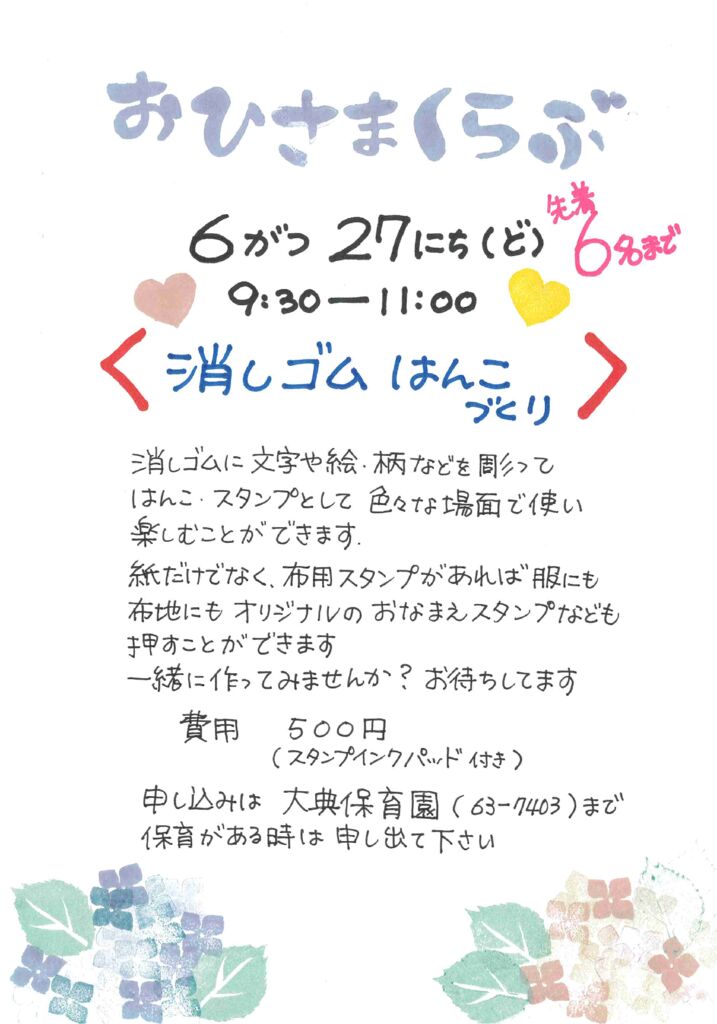 おひさまくらぶ
6がつ 27にち(ど)
先着
6名まで
9:30ー11:00
〈 消しゴム はんこ
づくり 〉
消しゴムに 文字や絵・柄などを 彫って
はんこ・スタンプとして 色々な場面で使い
楽しむことができます.
紙だけでなく、布用スタンプがあれば 服にも
布地にも オリジナルの おなまえスタンプなども
押すことができます
一緒に作ってみませんか? お待ちしてます
費用 500円
(スタンプインクパッド付き)
申し込みは 大典保育園(63-7403)まで
保育がある時は 申し出て下さい